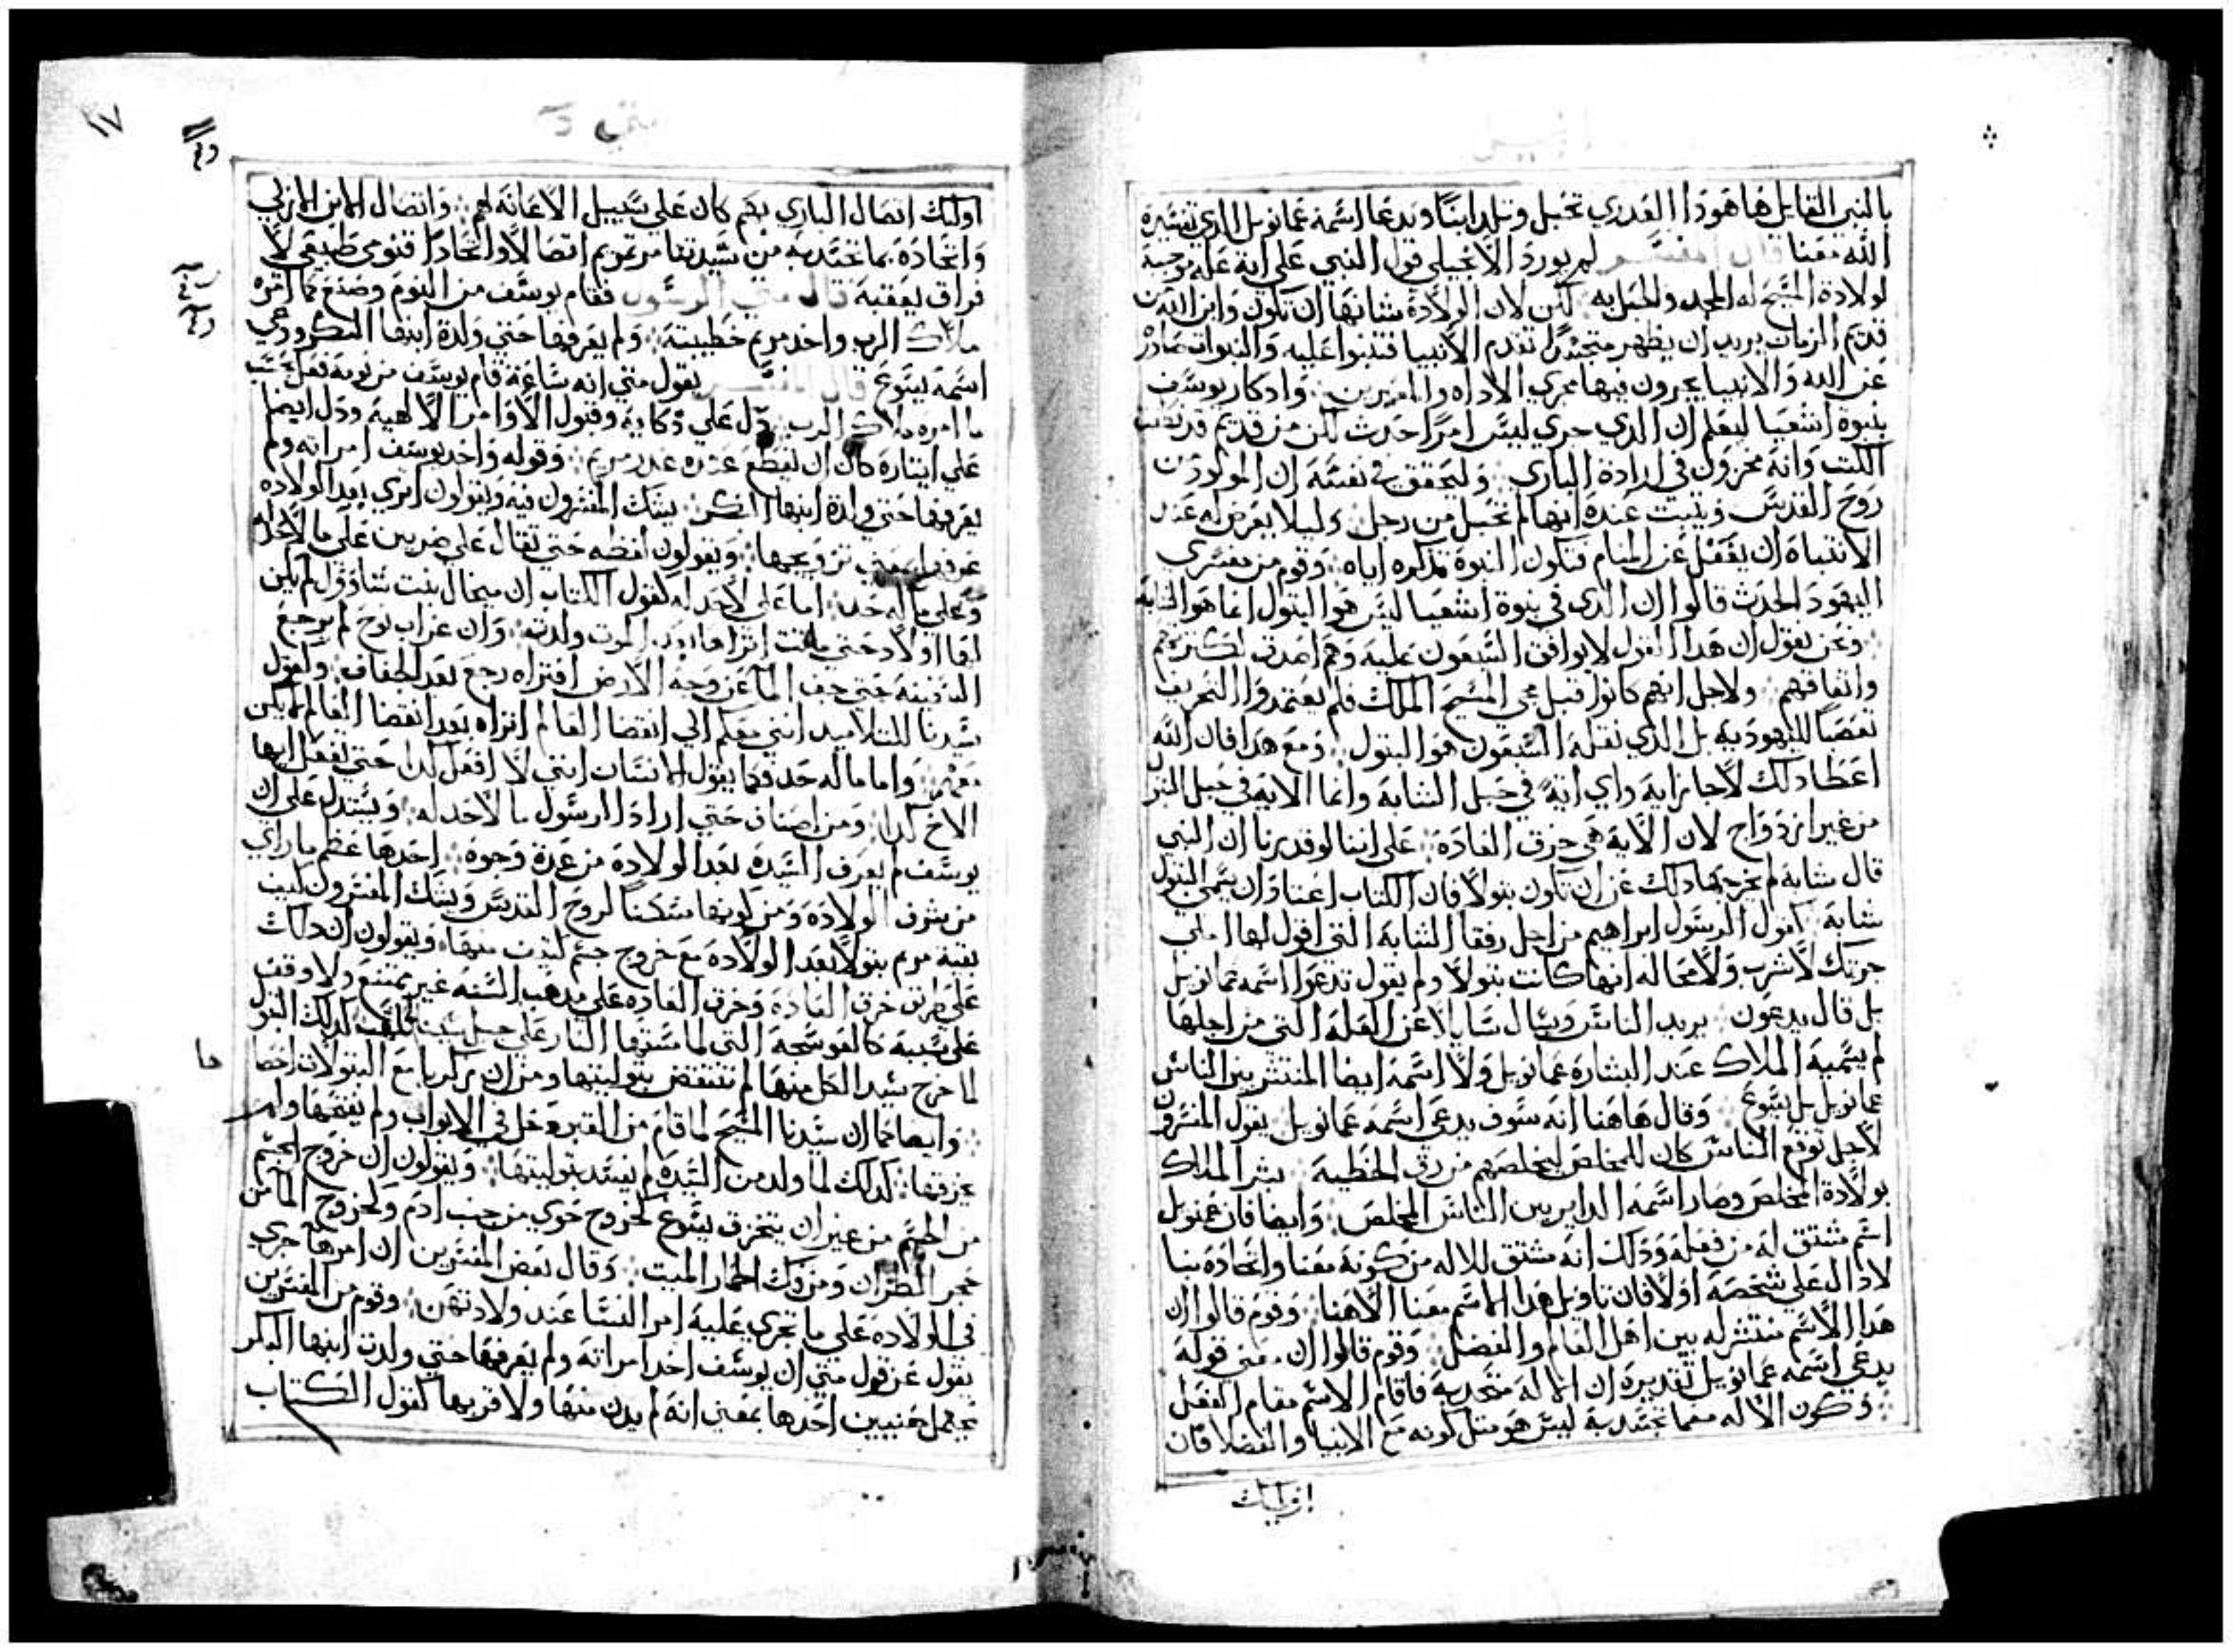 بالنبي القايل ها هودا العدري تحبل وتلد ابنًا ويدعا اسمه عمانويل الدي تفسيره
الله معنا قال المفسر لم يورد الانجيلي قول النبي علي انه عله موجبة
لولادة المسيح له المجد والحل به لكن لان الولادة شانها ان تكون وابن الله
قديم الزمان يريد ان يظهر متجسدًا تقدم الانبيا فتنبوا عليه والنبوات صادرة
عن الله والانبيا يجرون فيها مجري الاداه وادكار يوسف
بنبوة اشعيا ليعلم ان الدي جري ليس امرًا حدث لكن من قديم قد
الكتب وانه مخزون في ارادة الباري وليحقق في نفسه ان المولود من
روح القدس ويتبت عنده انها لم تحبل من رجل وليلا يعرض له عند
الانتباه ان يغفل عن المنام فتكون النبوة تدكره اياه وقوم من مفسري
اليهود الحدث قالوا ان الدي في نبوة اشعيا ليس هو البتول انما هو الشابه
ونحن نقول ان هدا القول لا يوافق السبعون عليه وهم اصدق لكترتهم
واتفاقهم ولاجل انهم كانوا قبل مجي المسيح الملك فلم يعتمدوا التحريف
تعصبًا لليهودية بل الدي نقله السبعون هو البتول ومع هدا فان الله
اعطا دلك لاجاز اية واي اية في حبل الشابه وانما الاية في حبل البتول
من غير ازدواج لان الاية هي خرق العادة علي اننا لو قدرنا ان النبي
قال شابه لم يخرجها دلك عن ان تكون بتولاً فان الكتاب اعتاد ان يسمي البتول
شابة كقول الرسول ابراهيم من اجل رفقا الشابة التي اقول لها املي
جرتك لاشرب ولا محاله انها كانت بتولاً ولم يقول تدعوا اسمه عمانويل
بل قال يدعون يريد الناس ويسال سايلاً عن العلة التي من اجلها
لم يسميه الملاك عند البشارة عمانويل ولا اسمه ايضا المنتشر بين الناس
عمانويل بل يسوع وقال هاهنا انه سوف يدعي اسمه عمانويل يقول المفسرون
لاجل توقع الناس كان للمخلص ليخلصهم من رق الخطية بشر الملاك
بولادة المخلص وصار اسمه الداير بين الناس المخلص وايضا فان عمنويل
اسم مشتق له من فعله ودلك انه مشتق للاله من كونه معنا واتحاده بنا
لا دال علي شخصه اولا فان تاويل هدا الاسم معنا الاهنا وقوم قالوا ان
هدا الاسم منتشر له بين اهل العلم والفضل وقوم قالوا ان معني قوله
يدعي اسمه عمانويل تقديره ان الاله متحد به فاقام الاسم مقام الفعل
وكون الاله معما تجسد به ليس هو متل كونه مع الانبيا والفضلا فان
اوليك
متي
١٧
اوليك اتصال الباري بهم كان علي سبيل الاعانة لهم واتصال الابن الازلي
واتحاده بما تجسد به من سيدتنا مرتمريم اتصالاً واتحادًا قنومي طبيعي لا
فراق يعقبه قال متي الرسول فقام يوسف من النوم وصنع كما امره
ملاك الرب واخد مريم خطيبته ولم يعرفها حتي ولدة ابنها البكر ودعي
اسمه يسوع قال المفسر يقول متي انه ساعة قام يوسف من نومه فعل بحسب
ما امره ملاك الرب دل علي دكايه وقبول الاوامر الالهية ودل ايضا
علي ايتاره كان ان يقطع عدره عند مريم وقوله واخد يوسف امراته ولم
يعرفها حتي ولدة ابنها البكر يشك المفسرون فيه ويقولون اتري بعد الولاده
عرفها بمعني تزويجها ويقولون لفظه حتي تقال علي ضربين علي ما لا حد له
وعلي ما له حد اما علي لا حد له كقول الكتاب ان ميخال بنت شاوول لم يكن
لها اولاد حتي ماتت اتراها بعد الموت ولدت وان غراب نوح لم يرجع
السفينة حتي جف الما عن وجه الارض افتراه رجع بعد الجفاف وكقول
سيدنا للتلاميد انني معكم الي انقضا العالم اتراه بعد انقضا العالم لم يكن
معهم واما ما له حد فكما يقول الانسان انني لا افعل كدا حتي يفعل ايها
الاخ كدا ومن اصناف حتي اراد الرسول ما لا حد له ويستدل علي ان
يوسف لم يعرف السيدة بعد الولادة من عدة وجوه احدها عظم ما راي
من شرف الولادة ومن كونها مسكنًا لروح القدس ويشك المفسرون كيف
بقيت مريم بتولاً بعد الولادة مع خروج جسم كتيف منها ويقولون ان دلك
علي طريق خرق العادة وخرق العاده علي مدهب السنه غير ممتنع ولا وقف
علي سببه كالعوسجة التي لما مستها النار علي جبل سينا لم تلتهب كدلك البتول
لما خرج سيد الكل منها لم تنتقض بتوليتها ومن ان زكريا مع البتولات احصا
وايضا كما ان سيدنا المسيح لما قام من القبر دخل في الابواب ولم يفتحها ولم
يخرقها كدلك لما ولد من السيدة لم يفسد بتوليتها ويقولون ان خروج الجسم
من الجسم من غير ان ينخرق يسوع كخروج حوي من جنب ادم ولخروج الما من
حجر الظران ومن فك الحمار الميت وقال بعض المفسرين ان امرها جري
في الولاده علي ما تجري عليه امر النسا عند ولادتهن وقوم من المفسرين
يقول عن قول متي ان يوسف اخد امراته ولم يعرفها حتي ولدت ابنها البكر
يحتمل معنيين احدها بمعني انه لم يدن منها ولا قربها كقول الكتاب